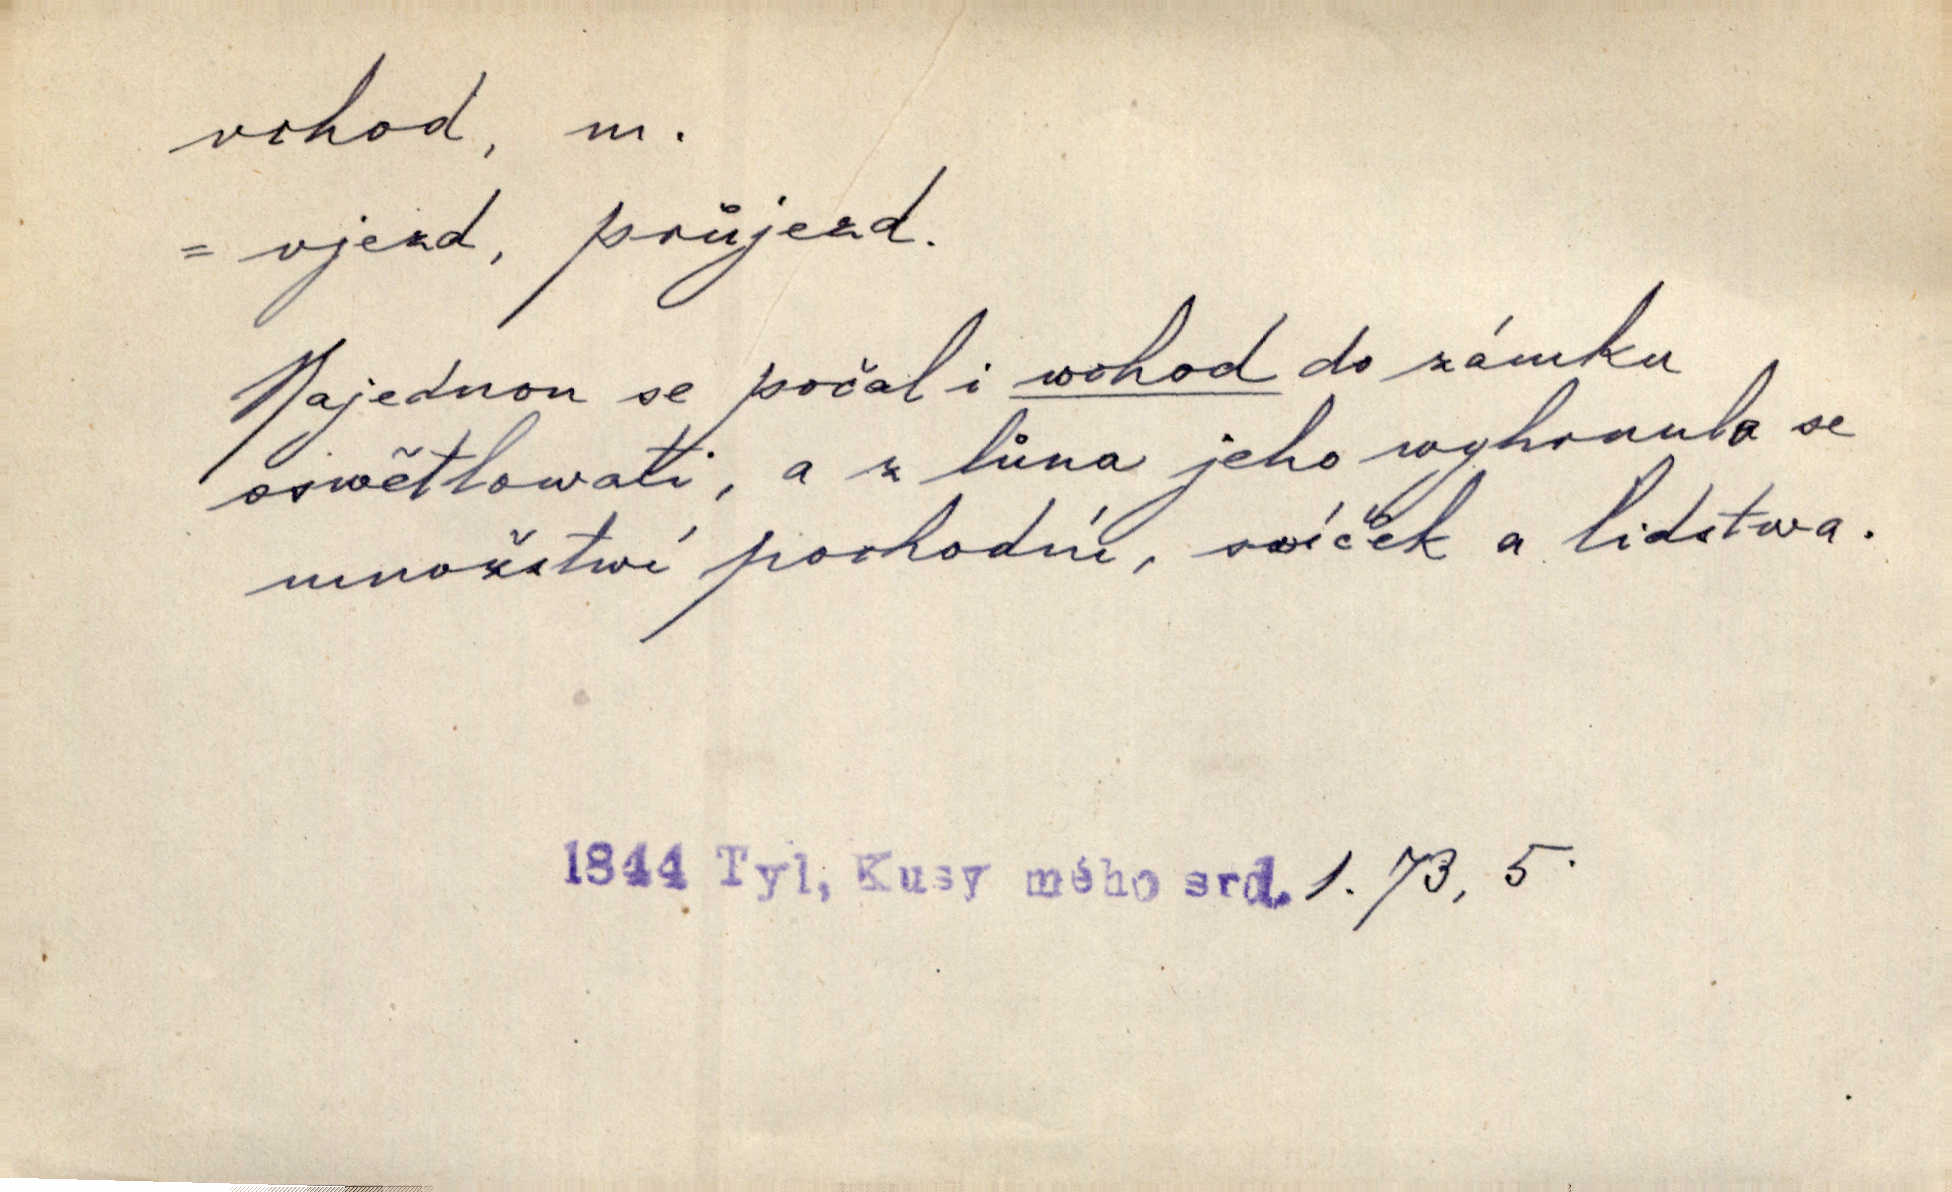 vchod, m.
= vjezd, průjezd.
Najednou se počal i wchod do zámku
oswětlowati, a z lůna jeho wyhrnula se
množstwí pochodní, swíček a lidstwa.
1844 Tyl, Kusy mého srd. 1. 73, 5.